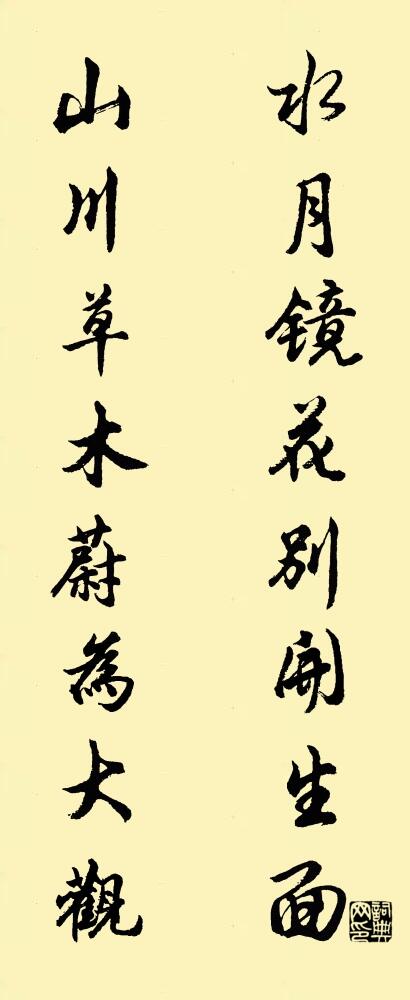 水月镜花别開生面
山川草木蔚為大觀
詞典网印